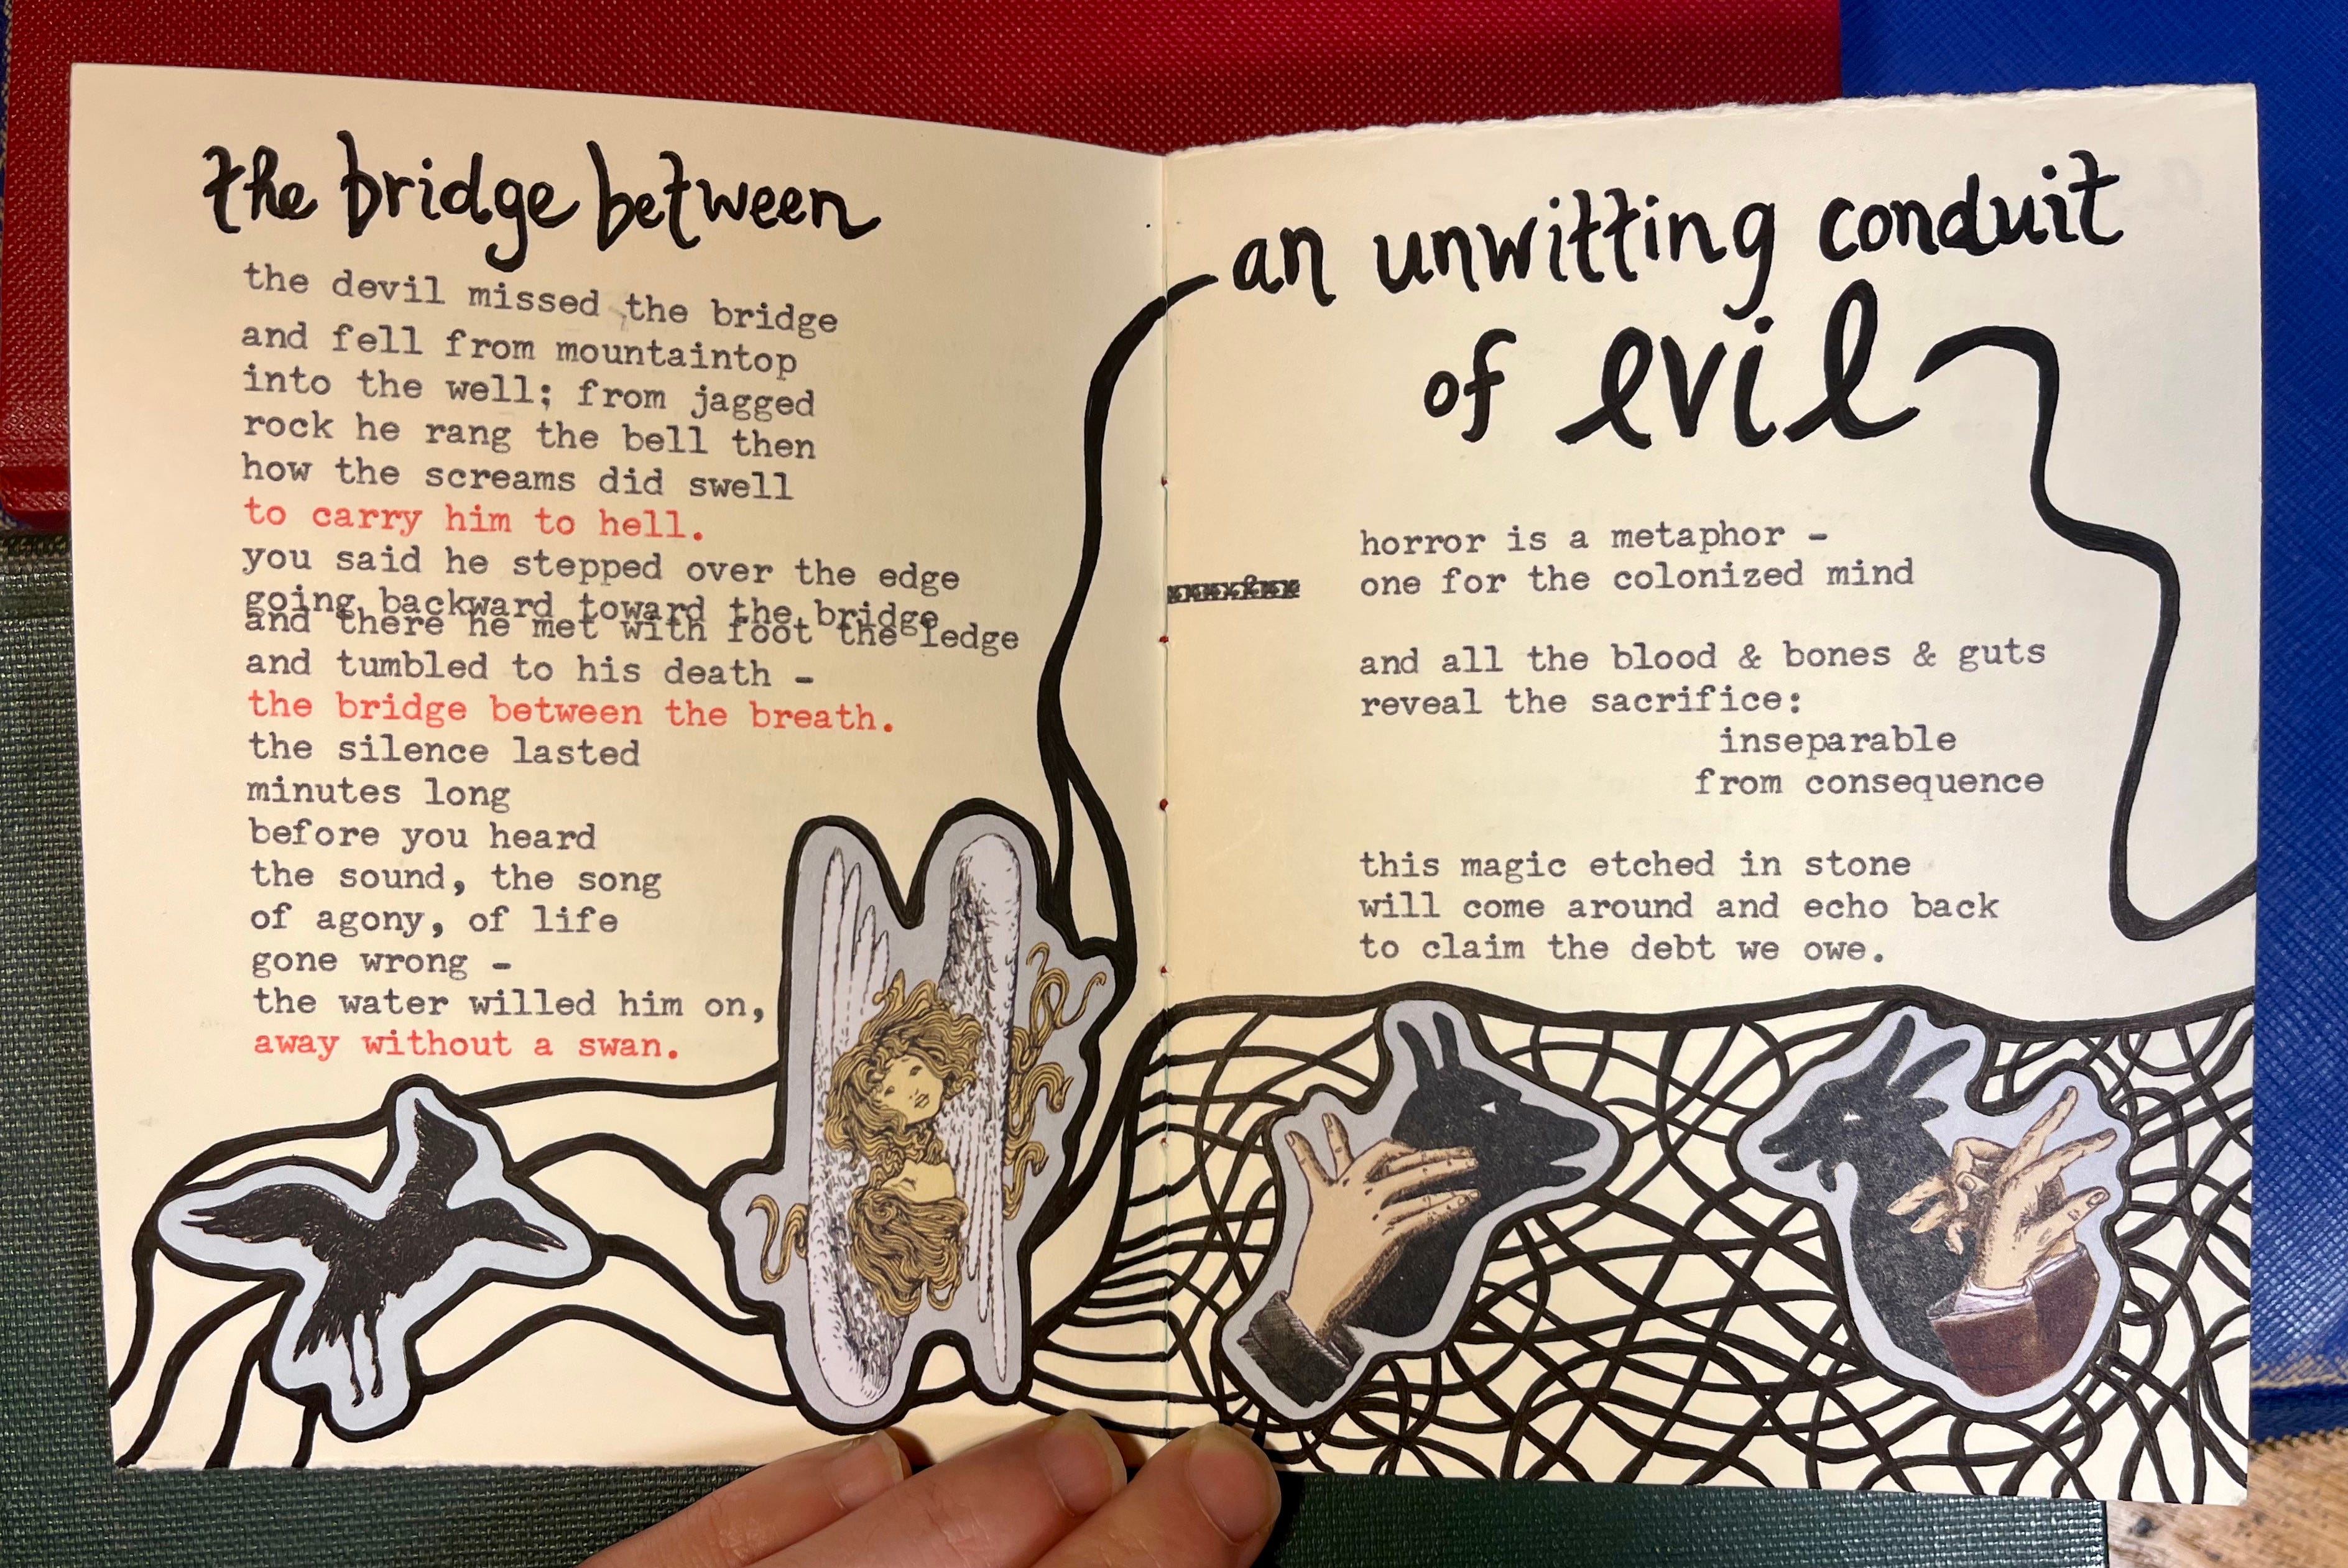 the bridge between
the devil missed the bridge
and fell from mountaintop
into the well; from jagged
rock he rang the bell then
how the screams did swell
to carry him to hell.
you said he stepped over the edge
going backward toward the bridge
and there he met with foot the ledge
and tumbled to his death -
the bridge between the breath.
the silence lasted
minutes long
before you heard
the sound, the song
of agony, of life
gone wrong -
the water willed him on,
away without a swan.
an unwitting conduit
of evil
horror is a metaphor -
one for the colonized mind
and all the blood & bones & guts
reveal the sacrifice:
inseparable
from consequence
this magic etched in stone
will come around and echo back
to claim the debt we owe.